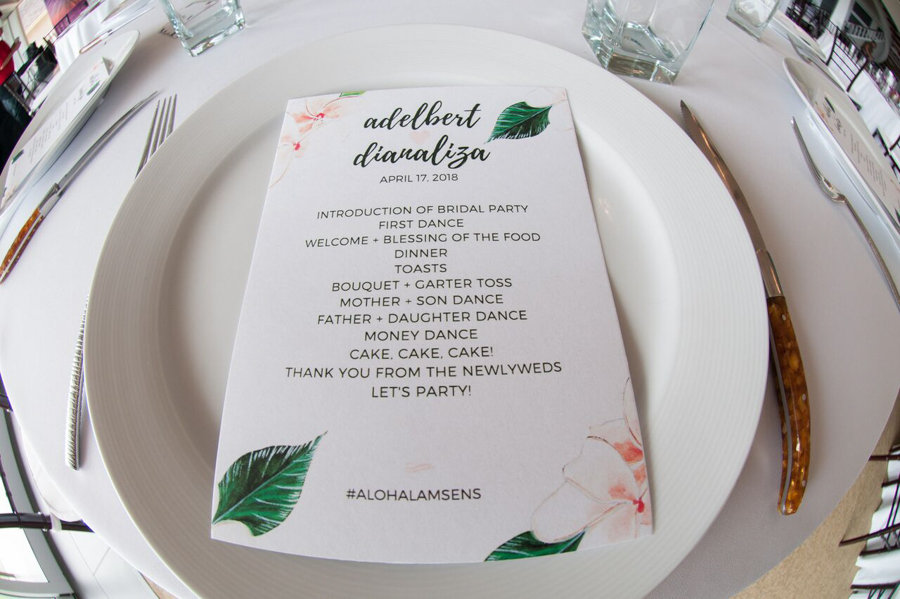 adelbert
dianaliza
APRIL 17, 2018
INTRODUCTION OF BRIDAL PARTY
FIRST DANCE
WELCOME + BLESSING OF THE FOOD
DINNER
TOASTS
BOUQUET + GARTER TOSS
MOTHER + SON DANCE
FATHER + DAUGHTER DANCE
MONEY DANCE
CAKE, CAKE, CAKE!
THANK YOU FROM THE NEWLYWEDS
LET'S PARTY!
#ALOHALAMSENS